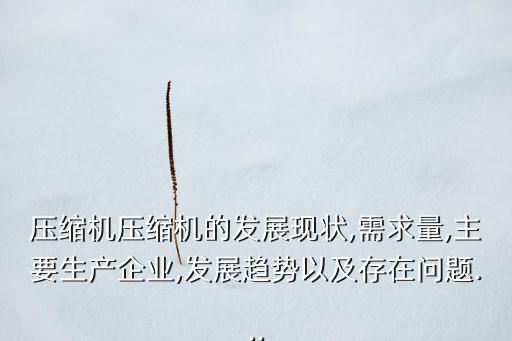 压缩机压缩机的发展现状,需求量,主
要生产企业,发展趋势以及存在问题.
..